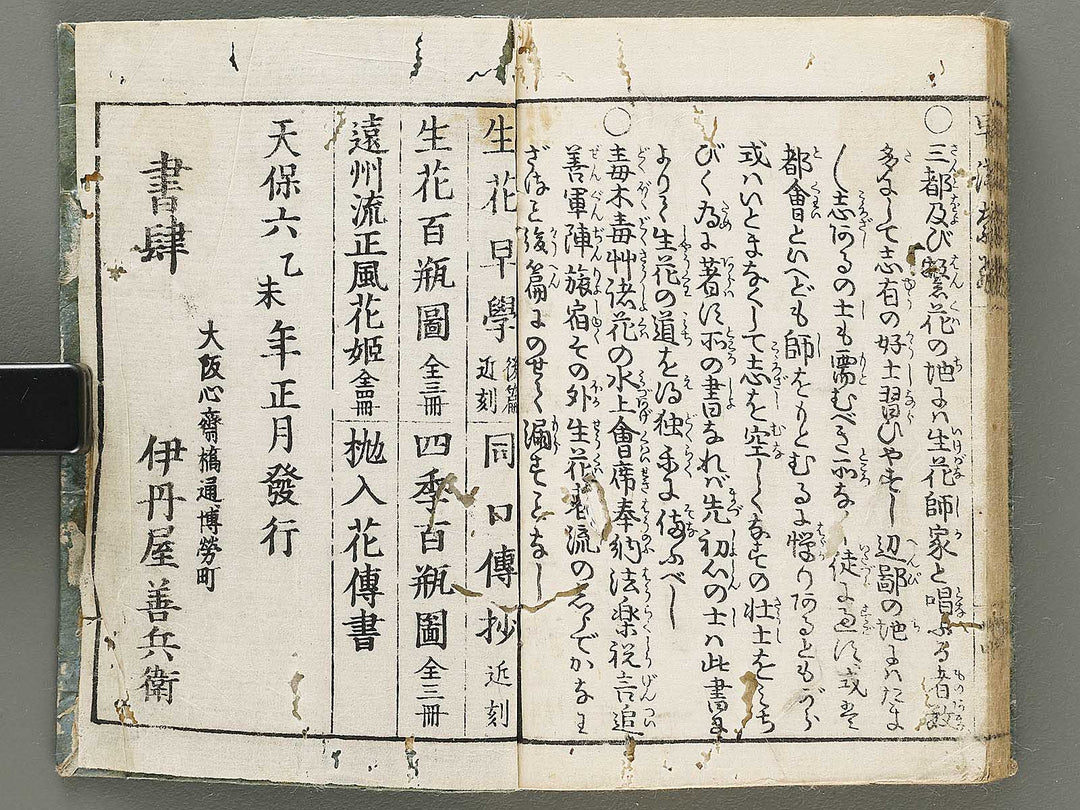 〇三都及び繁花の地にハ生花師家と唱ふる者数
多にして志有の好士習ひやすし辺鄙の地にハたま
〳〵し志ある の士も需むべき所なく徒に過し或ハ
都會といへども師をもとむるに憚りあるともがら
或ハいとまなくして志を空しくなすの壮士をみち
びく為に著す所の書なれバ先初心の士ハ此書に
よりて生花の道を得独稽に備ふべし
〇毒木毒艸諸花の水上會席奉納法楽祝言追
善軍陣旅宿その外生花諸流の
ざるを後篇にのせて漏すことなし
生花早學 後篇近刻
同 口傳抄 近刻
生花百瓶圖 全三冊
四季百瓶圖 全三冊
遠州流正風花姫 全四冊
抛入花傳書
天保六乙未年正月發行
大阪心齋橋通博勞町
書肆 伊丹屋善兵衛